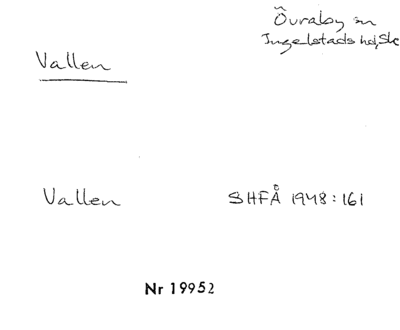 Övraby sn
Ingelstads hd, Sk
Vallen
Vallen SHFÅ 1948:161
Nr 19952